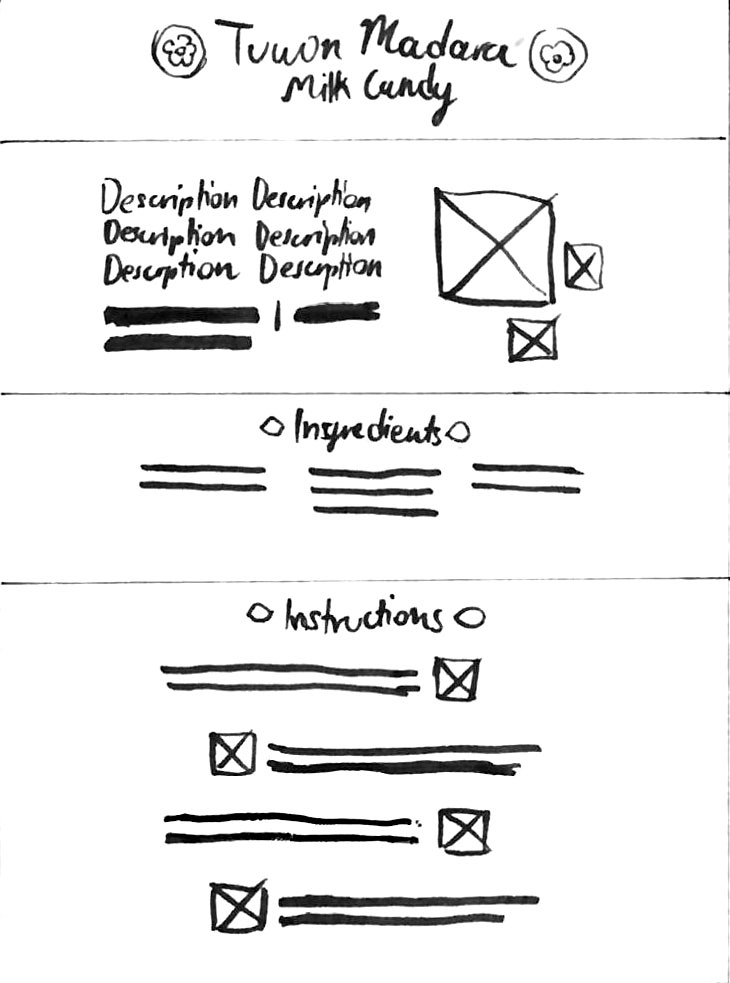 Tuwon Madara
Milk Candy
Description Description
Description Description
Descrption Descrption
Ingredients
Instructions